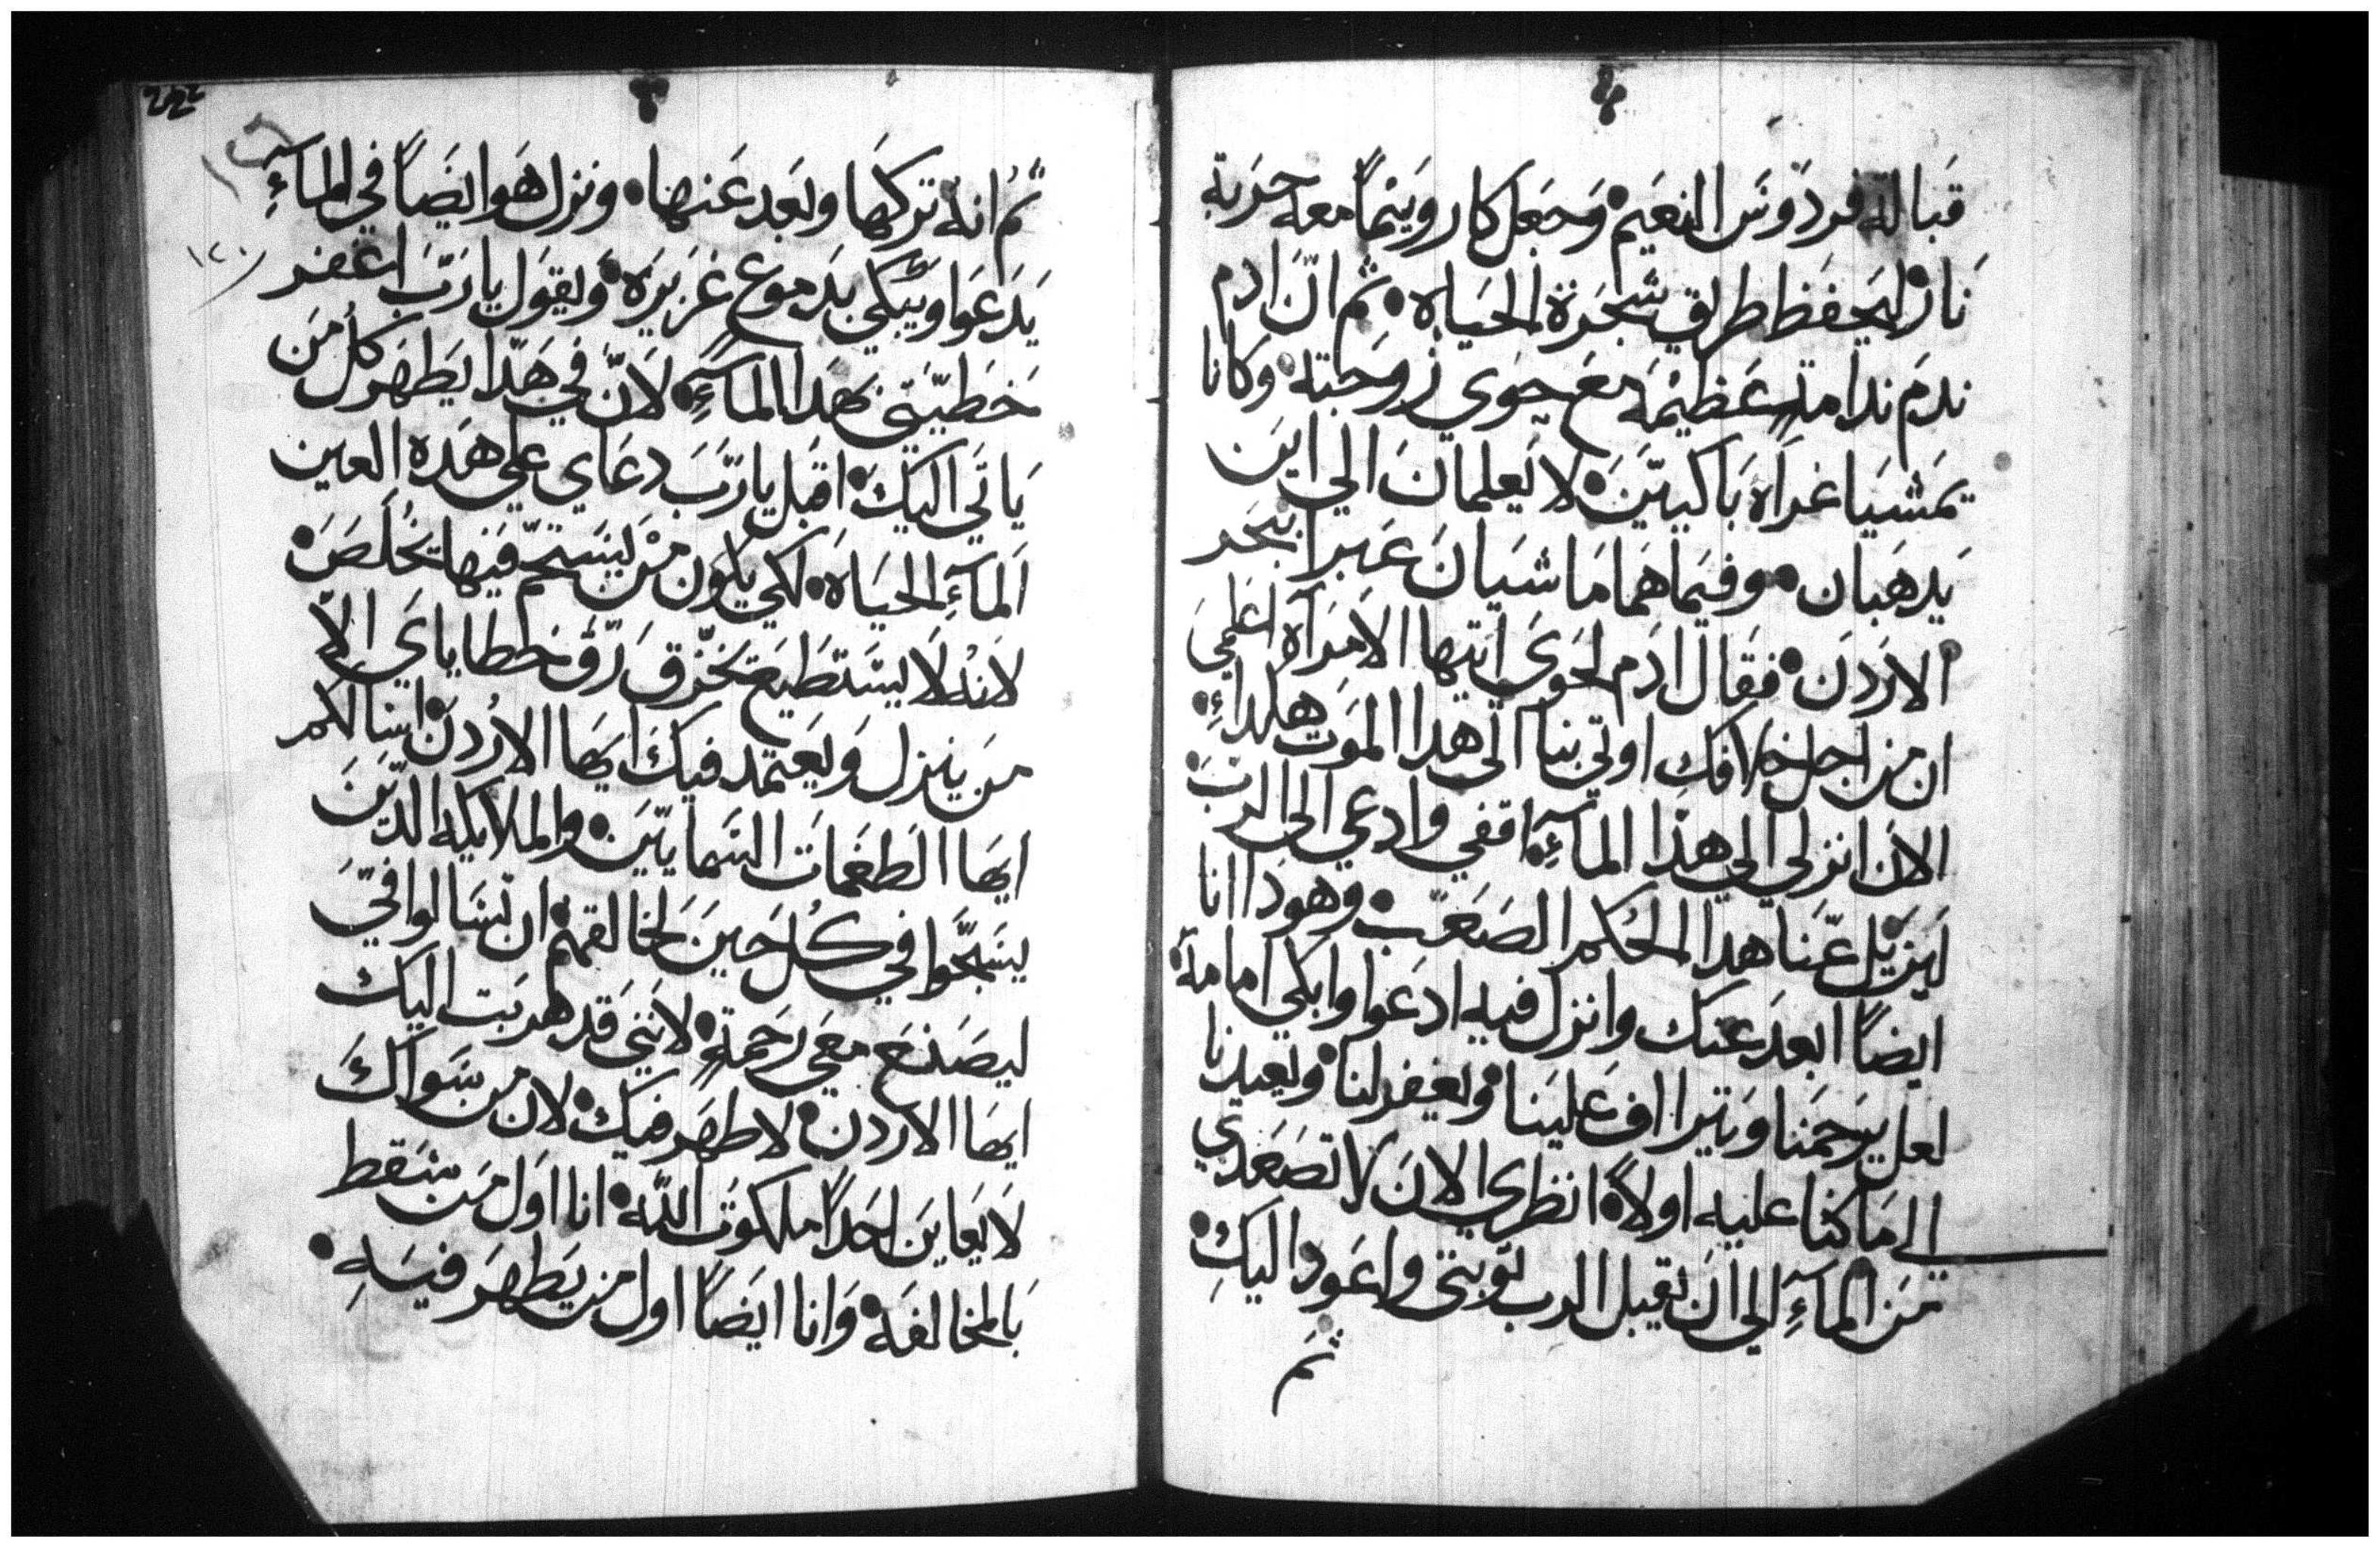 قبالة فردوس النعيم وجعل كاروبيمًا معه حربة
نار ليحفظ طريق شجرة الحياه ثم انّ ادم
ندم ندامةٍ عظيمة مع حوي زوجته وكانا
يمشيا عراه باكيين لا يعلمان الي اين
يدهبان وفيما هما ماشيان عبرا بحر
الاردن فقال ادم لحوي ايتها الامرآه اعلمي
ان من اجل خلافكِ اوتي بنا الي هدا الموت هكداءِ
الان انزلي الي هذا المآءِ اقفي وادعي الي الرب
ليزيل عنّا هدا الحُكم الصعب وهودا انا
ايضاً ابعد عنك وانزل فيه ادعوا وابكي امامهُ
لعل يرحمنا ويتراءف علينا ويغفر لنا ويعيدنا
الي ما كنا عليه اولاً انظري الان لا تصعدي
من المآءِ الي ان يقبل الرب توبتي واعود اليكِ
ثم
ثم انهُ تركها وبعد عنها ونزل هوا ايضاً في المآءِ
يدعوا ويبكي بدموع غزيرة ويقول يا رب اغفر
خطيتي بهدا المآءِ لانّ في هدا يطهر كل من
ياتي اليك اقبل يا رب دعاي علي هده العين
المآءِ الحياه لكي يكون من يستحمّ فيها يخلص
لانهُ لا يستطيع يخزق رق خطاياي الاّ
من ينزل ويعتمد فيك ايها الاردن اينا لكم
ايها الطغمات السماييين والملايكه الدين
يسبحوا في كل حين لخالقهم ان تسالوا فيّ
ليصنع معي رحمةٍ لانني قد هربت اليك
ايها الاردن لاطهر فيك لان من سواك
لا يعاين احداً ملكوت الله انا اول من سقط
بالمخالفه وانا ايضاً اول من يطهر فيهِ